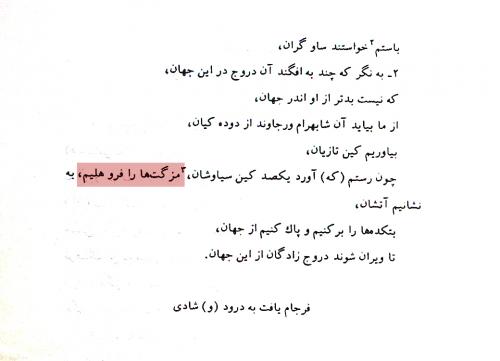 باستم۲ خواستند ساو گران،
۲ـ به نگر که چند به افگند آن دروج در این جهان،
که نیست بدتر از او اندر جهان،
از ما بیاید آن شابهرام ورجاوند از دوده کیان،
بیاوریم کین تازیان،
چون رستم (که) آورد یکصد کین سیاوشان،۳ مزگت‌ها را فرو هلیم، به
نشانیم آتشان،
بتکده‌ها را برکنیم و پاك کنیم از جهان،
تا ویران شوند دروج زادگان از این جهان.
فرجام یافت به درود (و) شادی